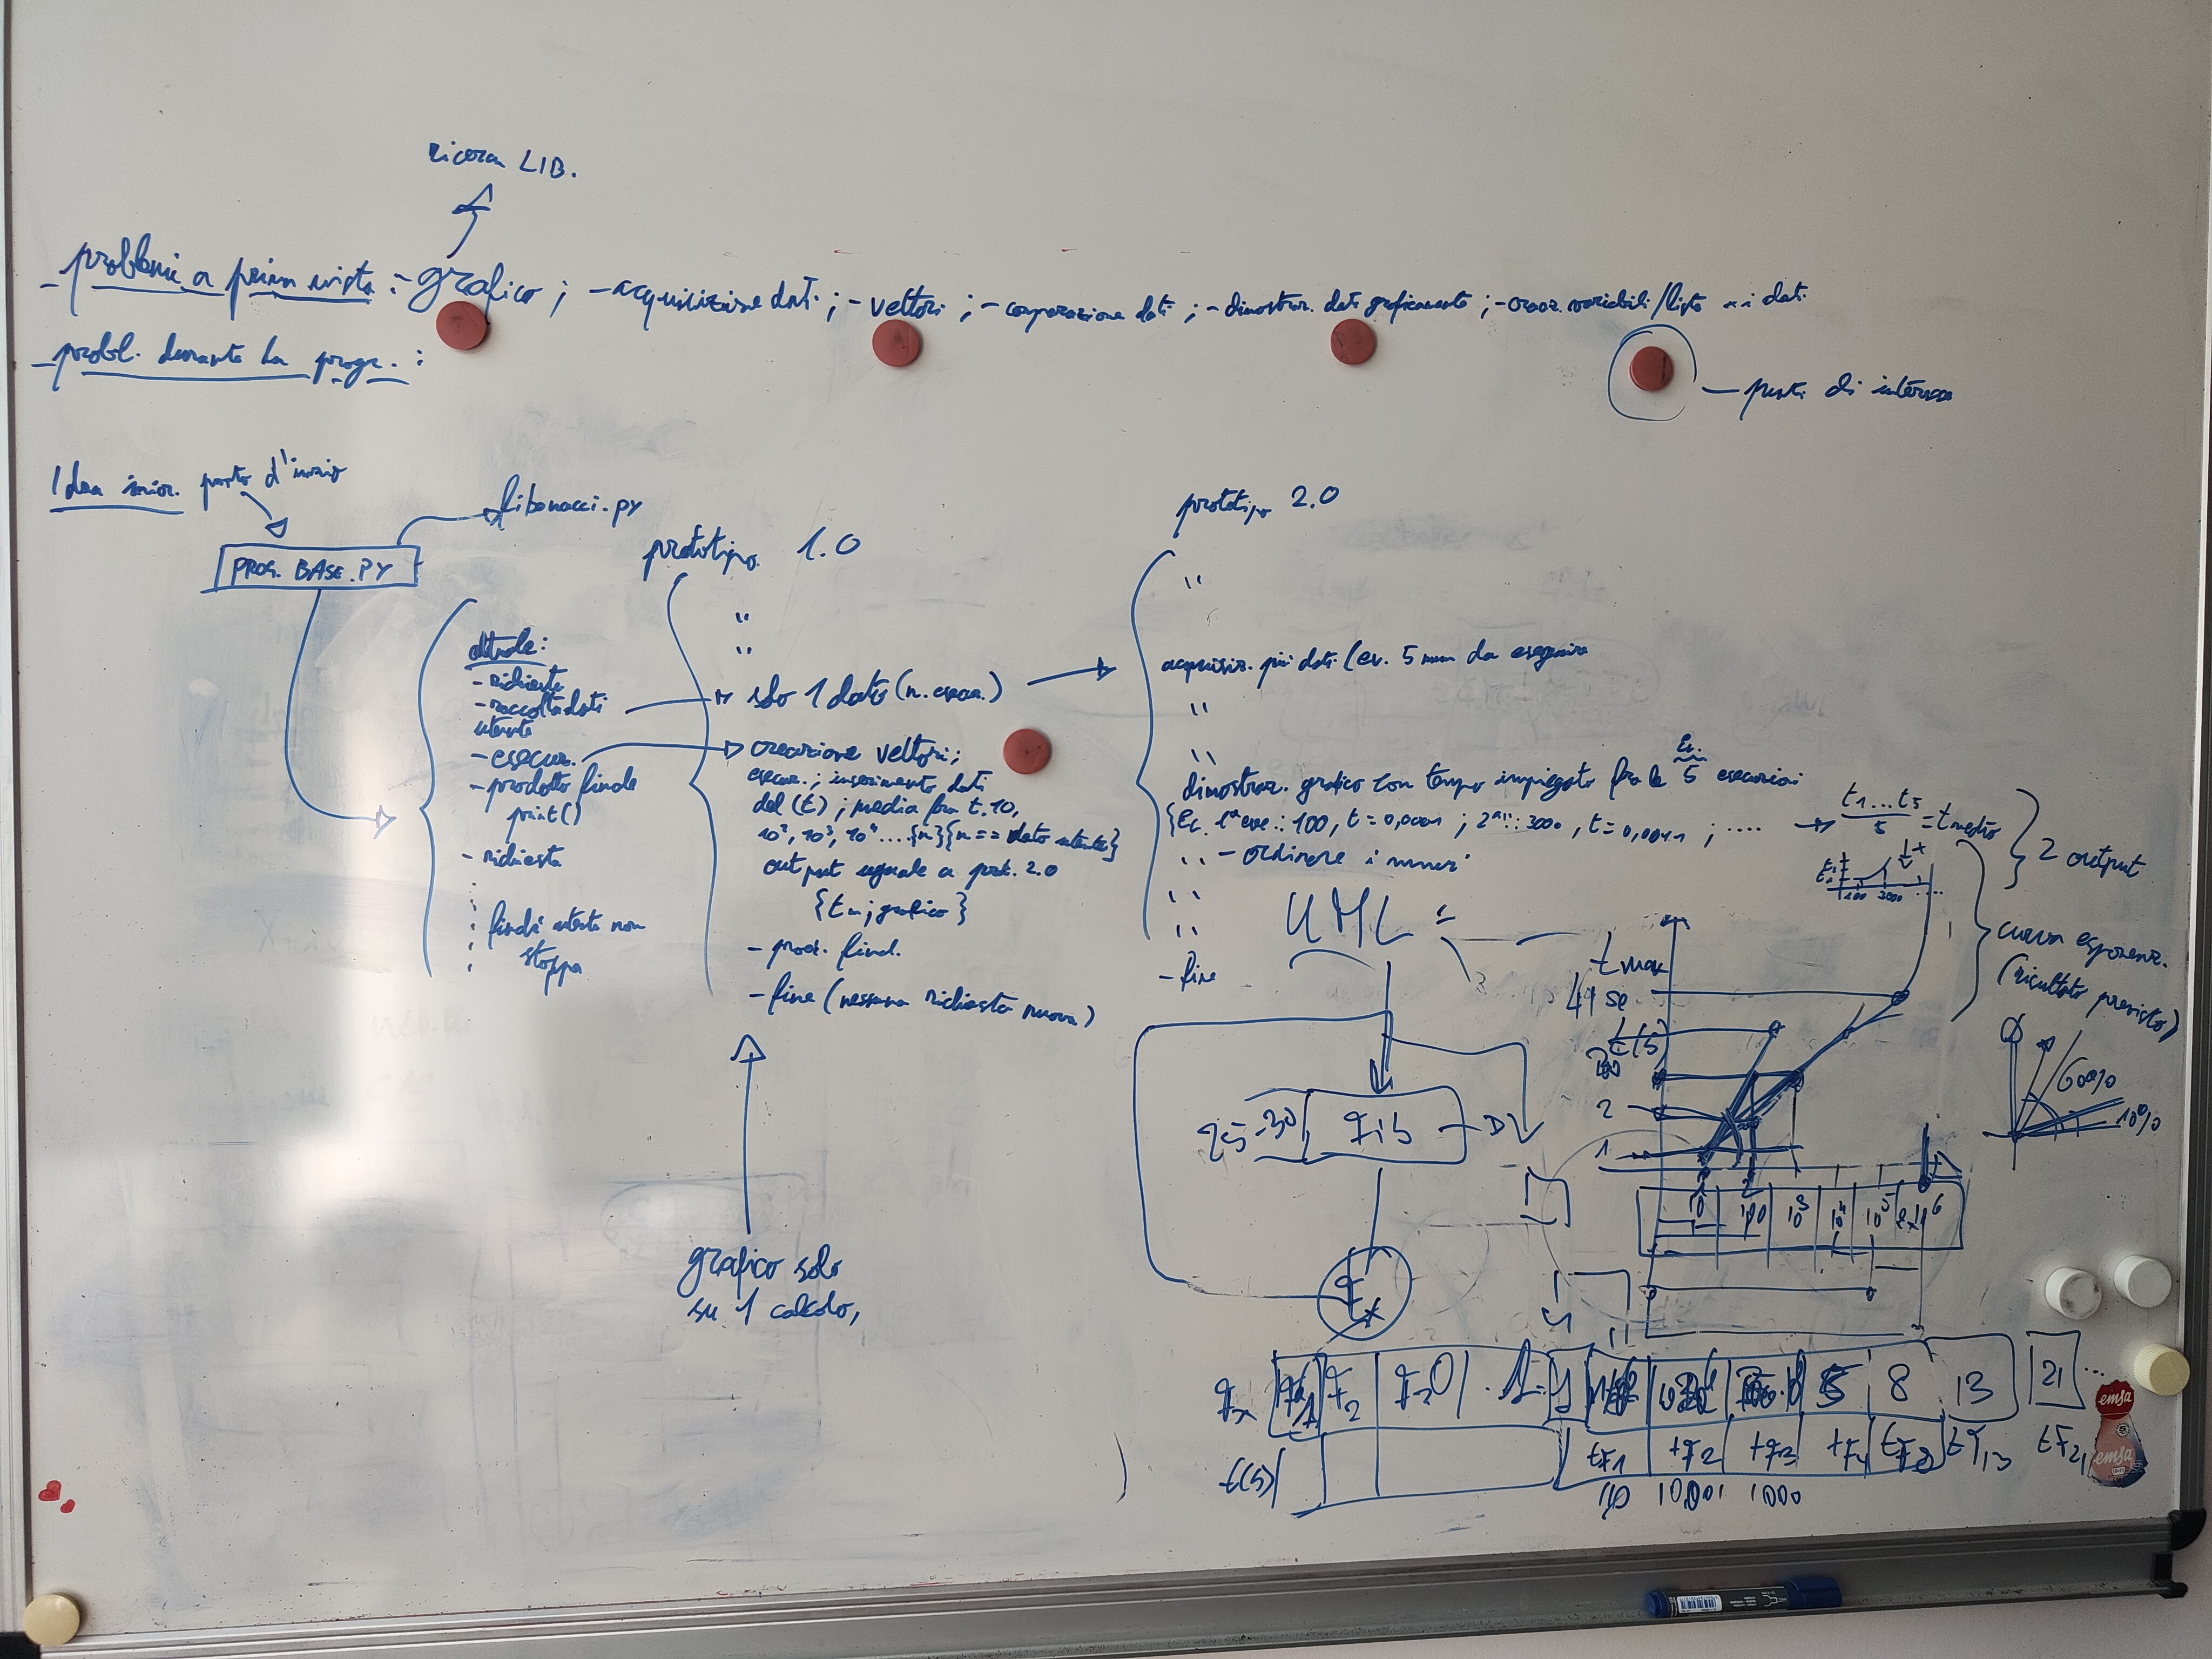 ricerca LIB.
- problemi a prima vista : - grafico ; - acquisizione dati ; - vettori ; - comparazione dati ; - dimostraz. dati graficamente ; - creaz. variabili/liste dati
- probl. durante la progr. :
- punti di interesse
Idea iniz. punto d'inizio
fibonacci.py
PROG. BASE.PY
attuale:
- richiesta
- raccolta dati
utente
- esecuz.
- prodotto finale
print()
- richiesta
finché utente non
stoppa
prototipo 1.0
"
"
solo 1 dato (n. esecu.)
creazione vettori;
esecuz.; inserimento dati
del (t) ; media fra t.10,
10², 10³, 10⁴ ....{n}{n == dato utente}
output uguale a prot. 2.0
{tm ; grafico}
- prod. final.
- fine (nessuna richiesta nuova)
grafico solo
su 1 calcolo,
prototipo 2.0
"
acquisiz. più dati (es. 5 num da eseguire
"
"
Es.
dimostraz. grafico con tempo impiegato fra le 5 esecuzioni
{Es. 1ª ese :: 100, t = 0,0001 ; 2ª :: 3000, t = 0,0011 ; ....
t1...t5
5 = t medio
" - ordinare i numeri
"
"
- fine
100 3000 ....
2 output
curva esponenz.
(risultato previsto)
UML
t max
41 se
t(s)
2
1
25-30
Fib
Fx
60%
10%
10 100 10³ 10⁴ 10⁵ 10⁶
Fx F2 5 8 13 21 ...
t(s) tF1 tF2 tF3 tF4 tF8 tF13 tF21
1000
emsa
emsa